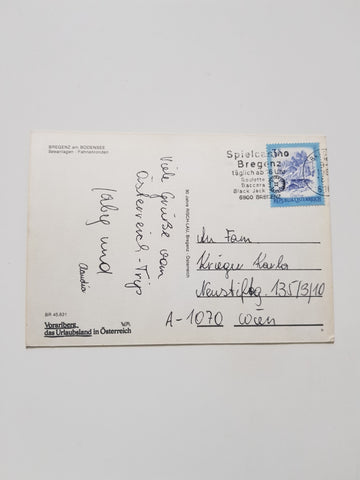 BREGENZ am BODENSEE
Seeanlagen - Fahnenrondell
Viele Grüße vom
Österreich-Trip
Gaby und
Claudia
BR 45.831
Vorarlberg,
das Urlaubsland in Österreich
30 Jahre RISCH-LAU, Bregenz - Österreich
Spielcasino
Bregenz
täglich ab
Roulette
Baccara
Black Jack
6900 BREGENZ
REPUBLIK ÖSTERREICH
An Fam.
Krieger Karla
Neustiftg. 135/3/10
A-1070 Wien